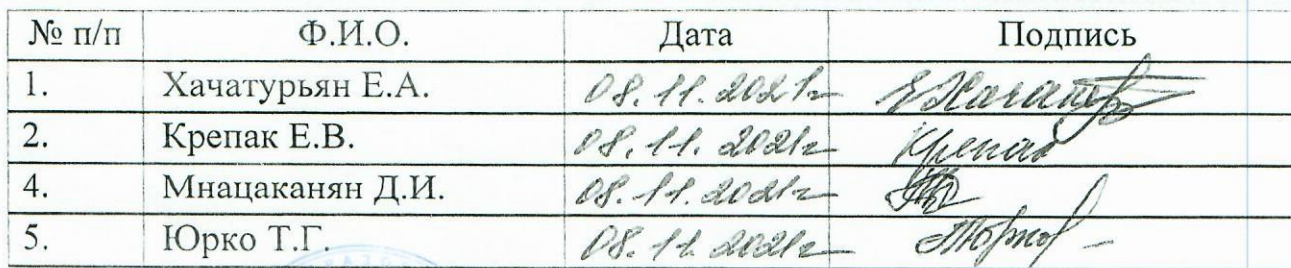 № п/п Ф.И.О. Дата Подпись
1. Хачатурьян Е.А. 08.11.2021г
2. Крепак Е.В. 08.11.2021г Крепак
4. Мнацаканян Д.И. 08.11.2021г
5. Юрко Т.Г. 08.11.2021г